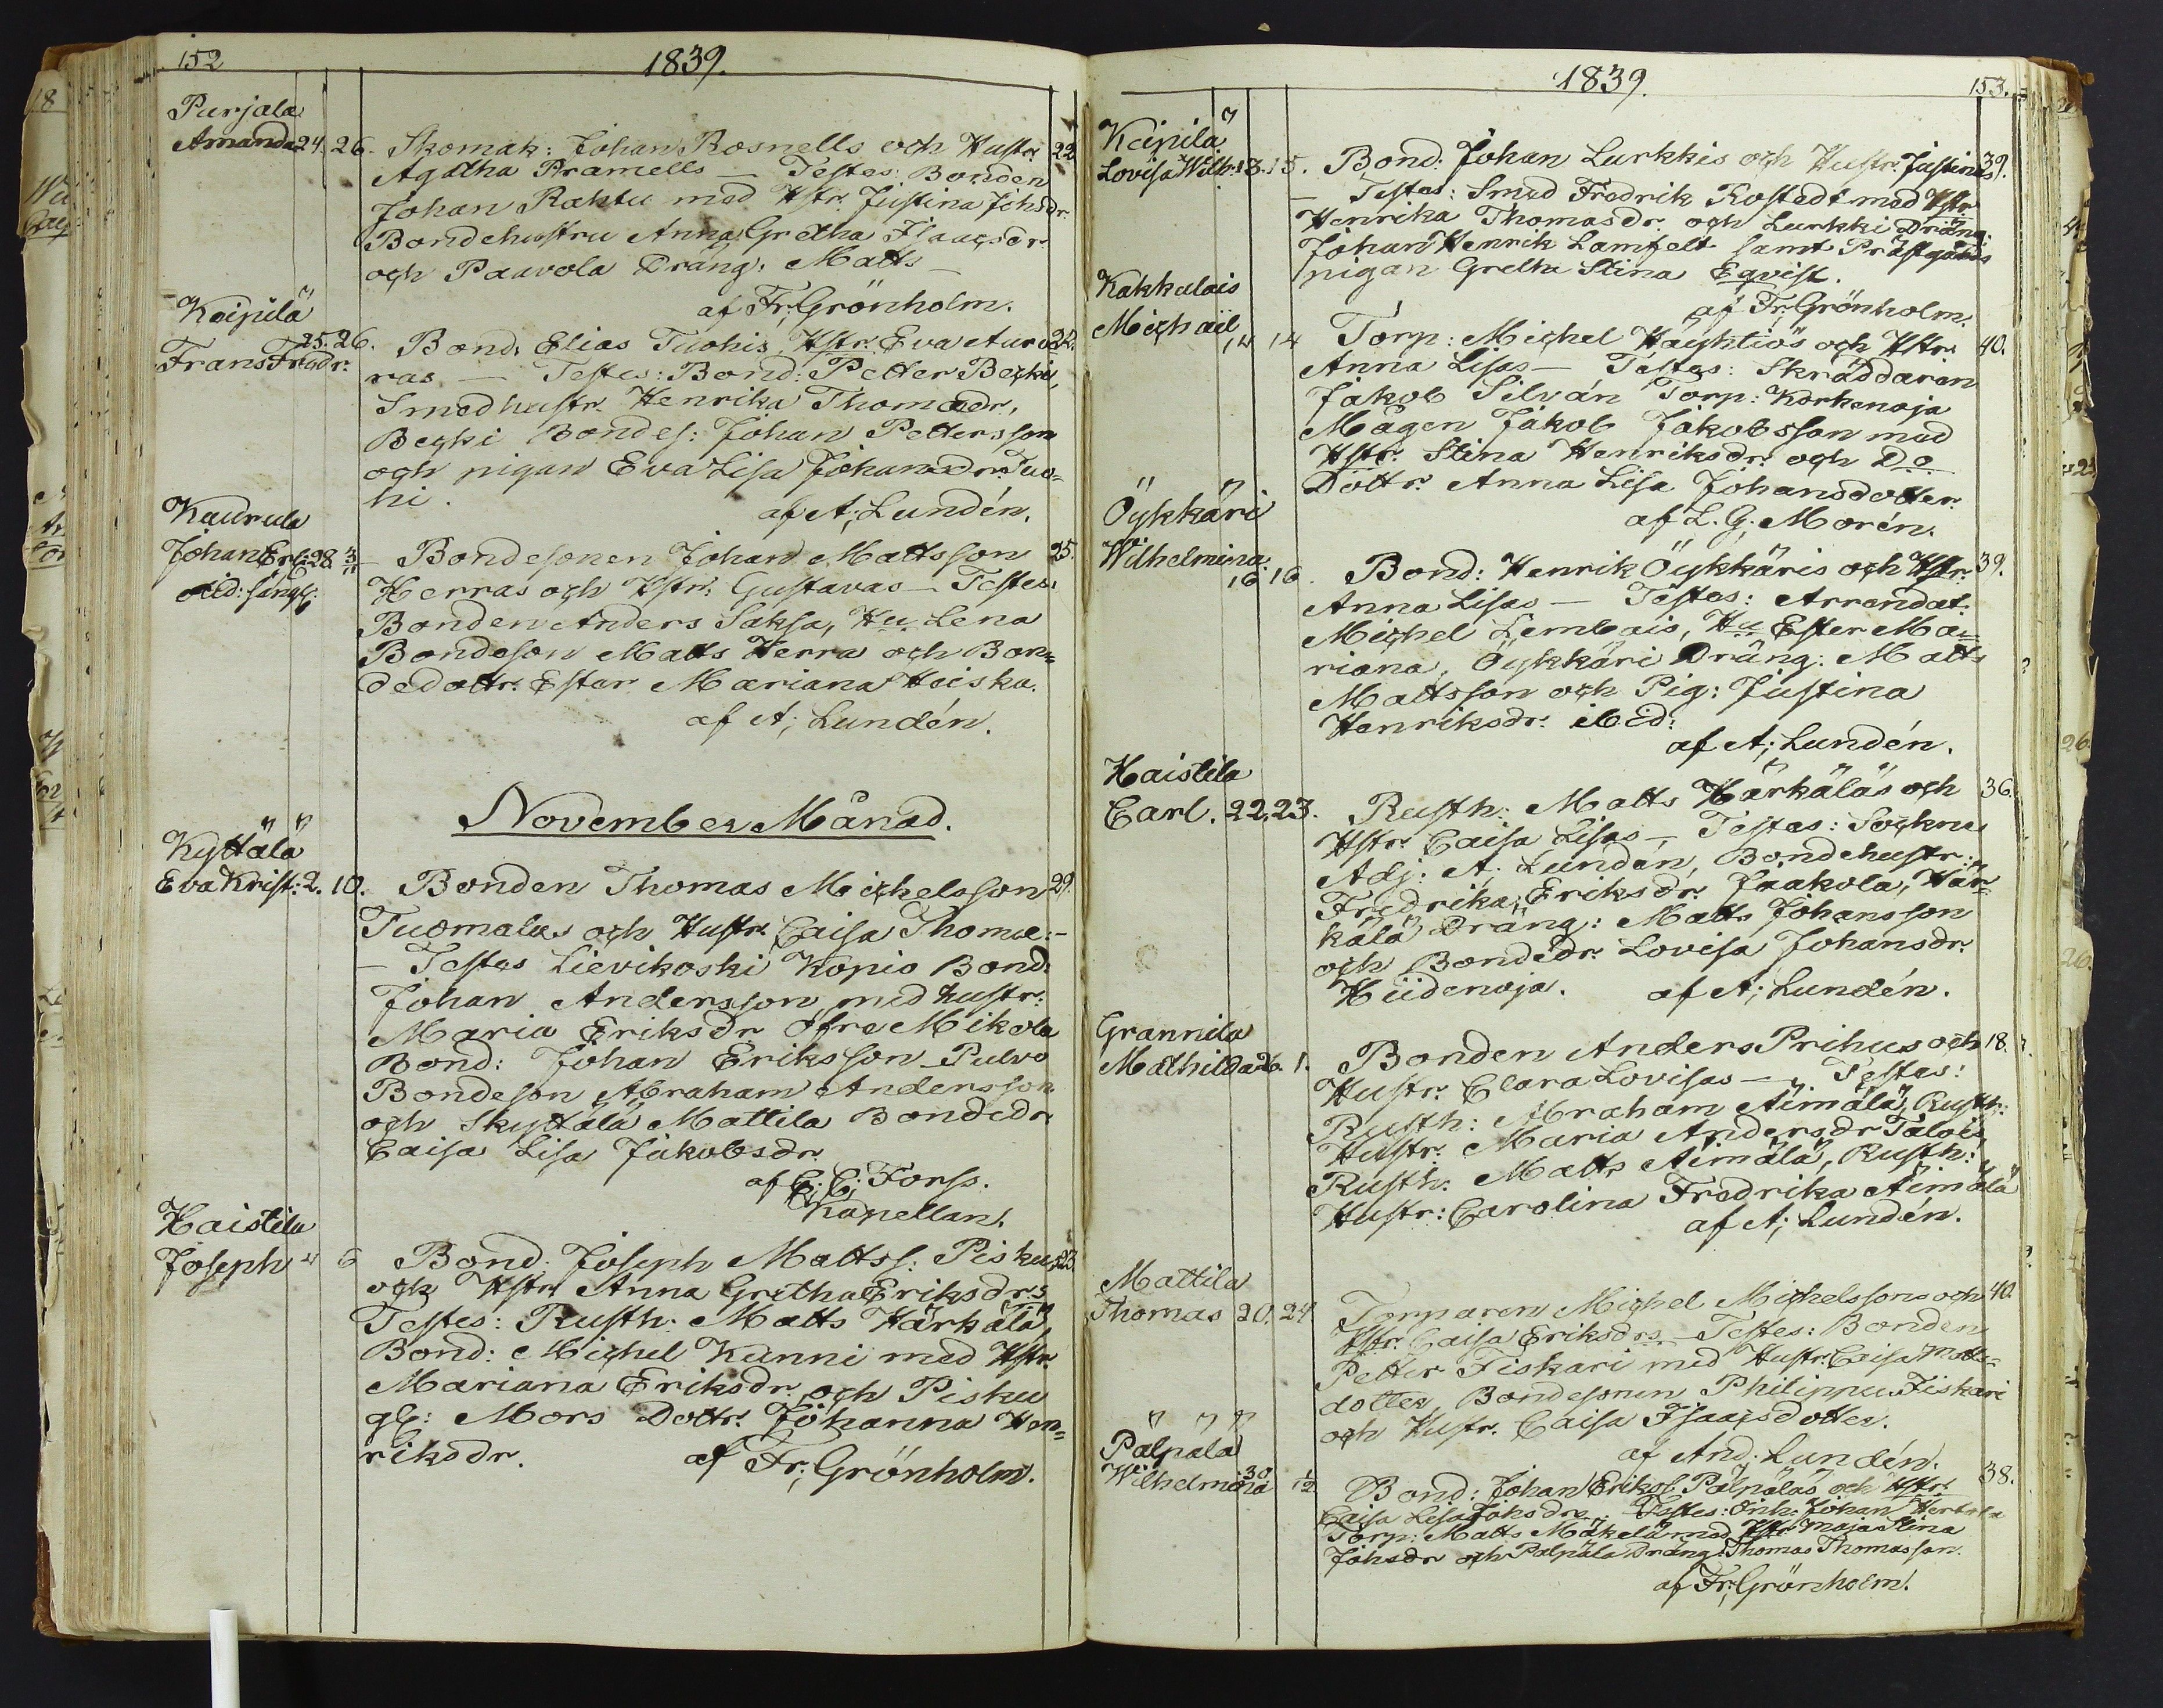 152
1839.
Purjala
Amanda 24. 26. Skomak: Johan Rosnells och Hustr. 22
Agatha Pramells — Testes: Bonden
Johan Raktu med Hstr. Justina Johsdr.
Bondehustru Anna Gretha Isaacsdr
och Paavola Dräng: Matts —
af Fr; Grönholm.
Koipilä
25. 26. Bond: Elias Tuohis Hstr. Eva Auro 22.
Frans Fredr. ras — Testes: Bond: Petter Becku,
Smedhustr. Henrika Thomasdr,
Becki Bondes: Johan Pettersson
och pigan Eva Lisa Johansdr. Tuo=
hi. af A; Lundén.
Kaurula
Johan Erl: 28 3/11 Bondesonen Johan Mattsson 25.
Herras och Hstr: Gustavas — Testes:
Bonden Anders Saksa, Hu Lena
Bondeson Matts Herra och Bon=
dedottr. Ester Mariana Heiska.
af A; Lundén.
November Månad.
Kyttälä
Eva Krist: 2. 10. Bonden Thomas Michelsson 29.
Tuomalas och Hustr. Caisa Thomæ: —
— Testes Lievikoski Kopio Bond:
Johan Andersson med hustr:
Maria Eriksdr Öfre Mikola
Bond: Johan Eriksson Pulvo
Bondeson Abraham Andersson
och Skyttälä Mattila Bondedr.
Caisa Lisa Jakobsdr.
af C; C; Forss.
Kapellan.
Haistila
Joseph 4 6 Bond: Joseph Mattss: Piskus 23.
och Hstr. Anna Gretha Eriksdrs
Testes: Rusth: Matts Härkälä,
Bond: Michel Kunni med Hstr.
Mariana Eriksdr. och Pisku
gl: Mors Dottr. Johanna Hen=
riksdr. af Fr; Grönholm.
1839.
153.
Koipilä
Lovisa Wilh: 13. 15. Bond: Johan Lurkkis och Hustr. Justinas 39.
— Testes: Smed Fredrik Rostedt med Hstr
Henrika Thomasdr. och Lurkki Dräng:
Johan Henrik Lamfelt samt Prästgårds
pigan Greta Stina Eqvist.
af Fr: Grönholm.
Kakkulais
Michaël 14 14 Torp: Michel Häyhtiös och Hstr. 40.
Anna Lisas — Testes: Skräddaren
Jakob Silván Torp: Korkenoja
Mågen Jakob Jakobsson med
Hstr. Stina Henriksdr. och Do
Dottr. Anna Lisa Johansdotter.
af L. G; Morén.
Öykkäri
Wilhelmina. 16. 16. Bond: Henrik Öykkäris och Hstr. 39.
Anna Lisas — Testes: Arrendat.
Michel Lembois, Hu Ester Ma
riana, Öykkäri Dräng: Matts
Mattsson och Pig: Justina
Henriksdr. ibid:
af A; Lundén.
Haistila
Carl. 22. 23. Rusth: Matts Härkäläs och 36.
Hstr. Caisa Lisas — Testes: Sockne
Adj: A. Lundén, Bondehustr:
Fredrika Eriksdr. Jaakola, Här=
kälä Dräng: Matts Johansson
och Bondedr. Lovisa Johansdr.
Hiidenoja. af A; Lundén.
Grannila
Mathilda 26. 1. Bonden Anders Prihus och 18.
Hustr. Clara Lovisas — Testes:
Rusth: Abraham Äimälä, Rusth:
Hustr. Maria Andersdr Talois,
Rusth: Matts Äimälä, Rusth:
Hustr: Carolina Fredrika Äimälä
af A; Lundén.
Mattila
Thomas 20. 24 Torparen Michel Michelssons och 40.
Hstr. Caisa Eriksdrs — Testes: Bonden
Petter Fiskari med Hustr. Caisa Matts=
dotter, Bondesonen Philippus Fiskari
och Hustr. Caisa Isaacsdotter.
af And; Lundén.
Pälpälä
Wilhelmina 30. 1/12 Bond: Johan Erikss: Pälpäläs och Hstr. 38.
Caisa Lisa Johsdrs — Testes: Enk: Johan
Torp: Matts Mäkelä med Hstr. Maja Stina
Johsdr och Pälpälä Dräng: Thomas Thomasson.
af Fr; Grönholm.